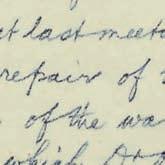 at last meet
repair of
of the wa
which